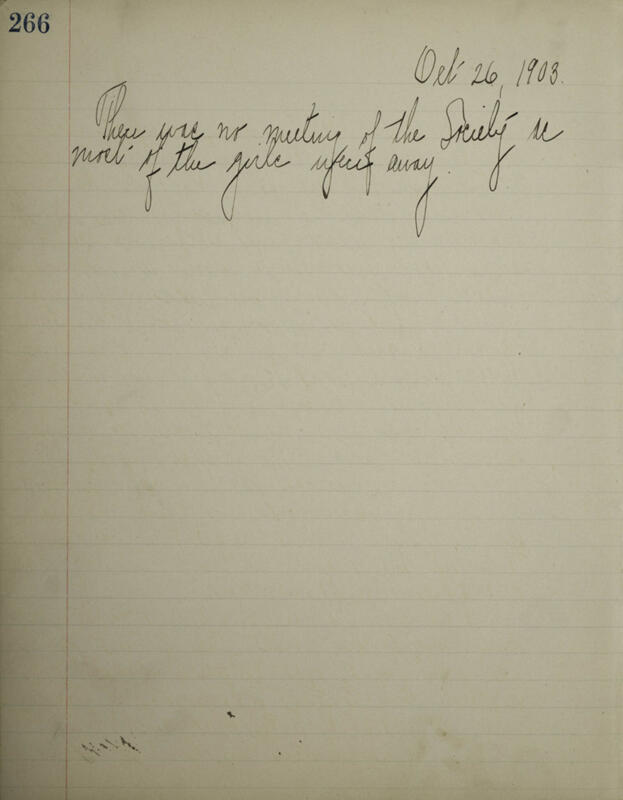 266
Oct 26, 1903.
There was no meeting of the Society as
most of the girls went away.